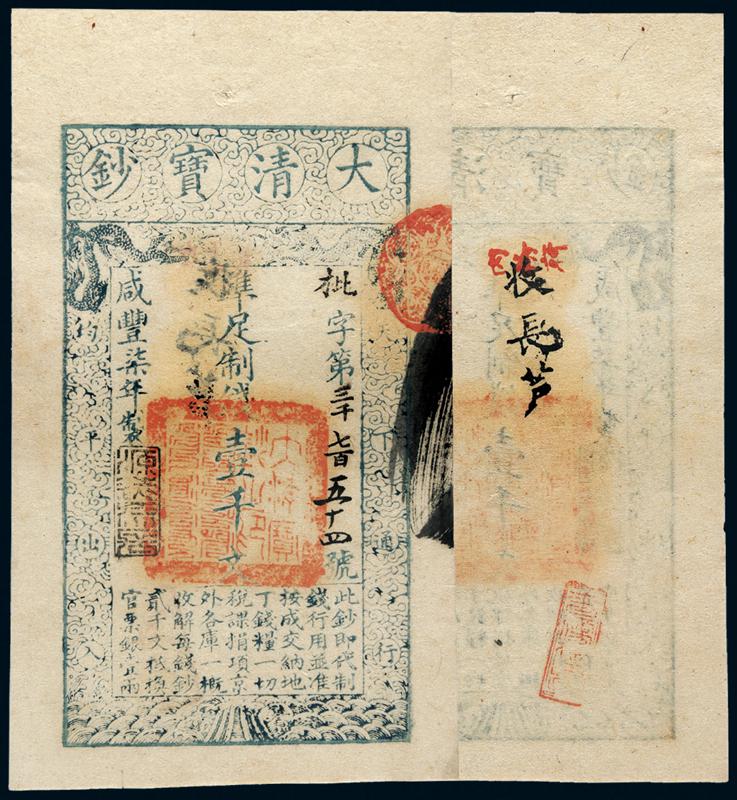 大清寶鈔
天下通行
批字第三千七百五十四號
準足制錢壹千文
咸豐柒年製
均平出入
此鈔即代制
錢行用並准
按成交納地
丁錢糧一切
稅課捐項京
外各庫一概
收解每錢鈔
貳千文抵換
官票銀壹兩
收長芦